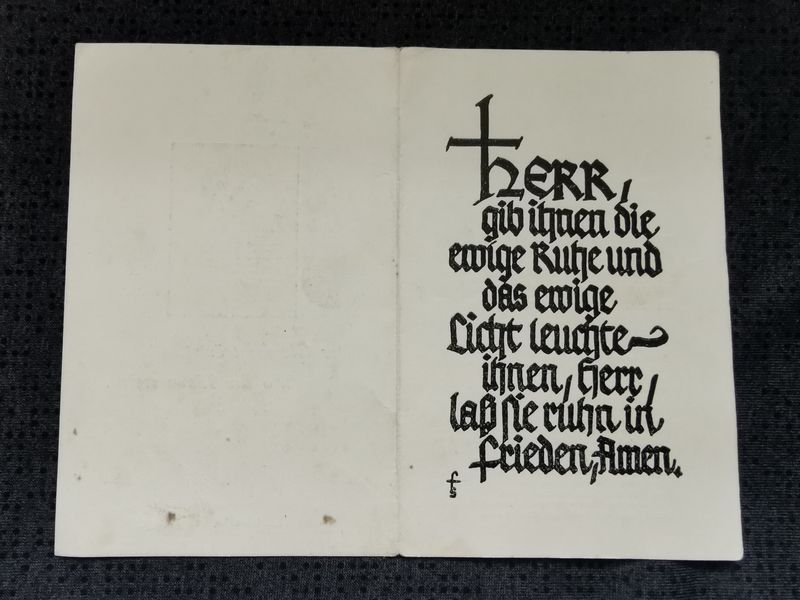 HERR,
gib ihnen die
ewige Ruhe und
das ewige
Licht leuchte
ihnen, Herr,
laß sie ruhn in
Frieden, Amen.
fs